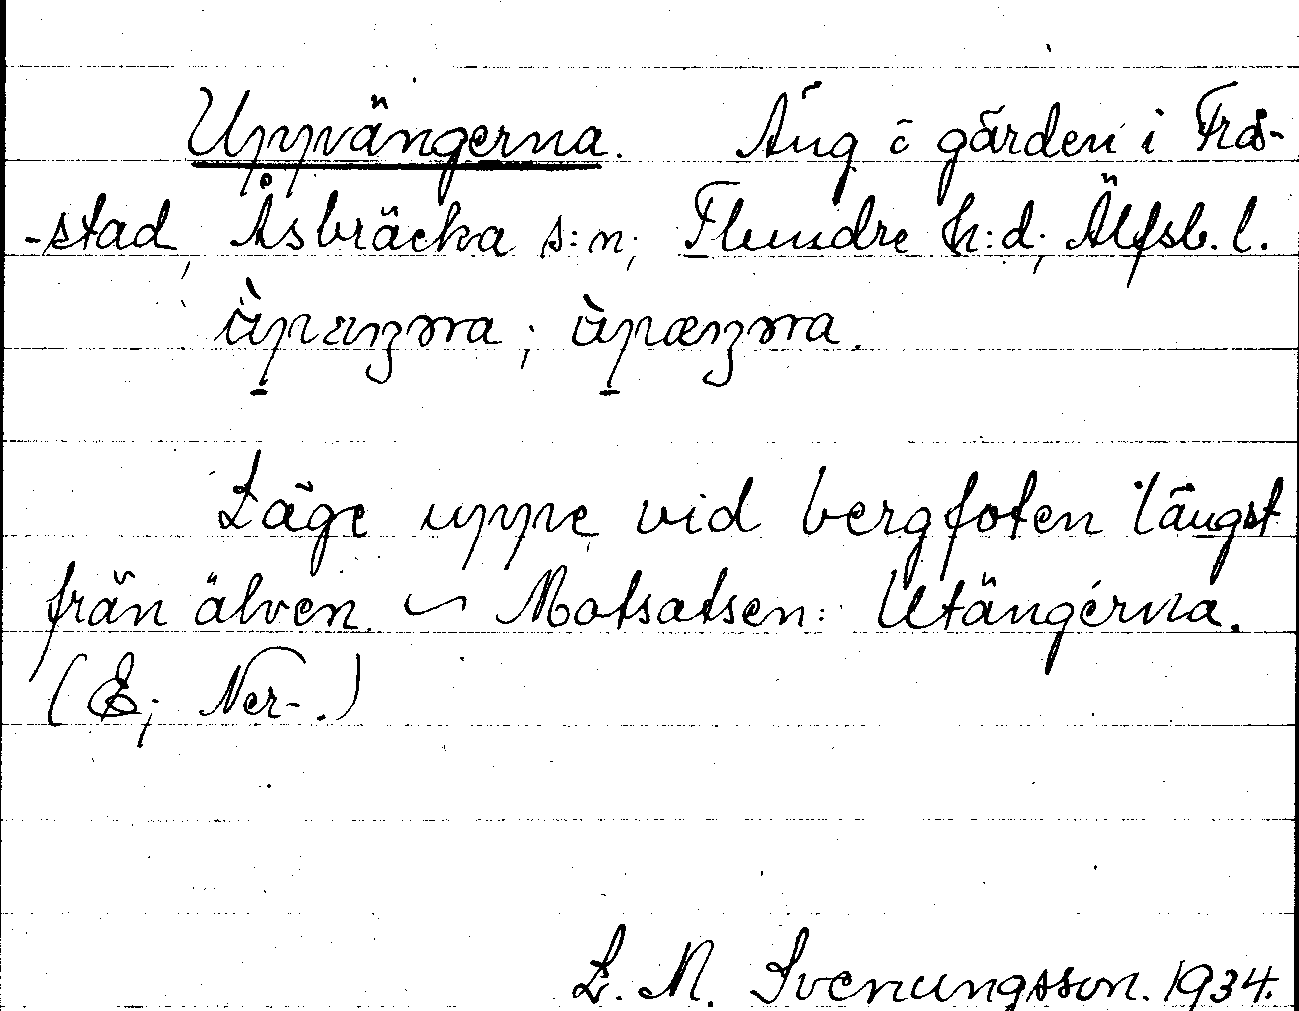 Uppvängerna. Äng å gärden i Frå-
-stad, Åsbräcka s:n; Flundre h:d; Älfsb. l.
Läge uppe vid bergfoten längst
från älven. ~ Motsatsen: Utängerna.
(E; Ner-.)
L. N. Svenungsson. 1934.